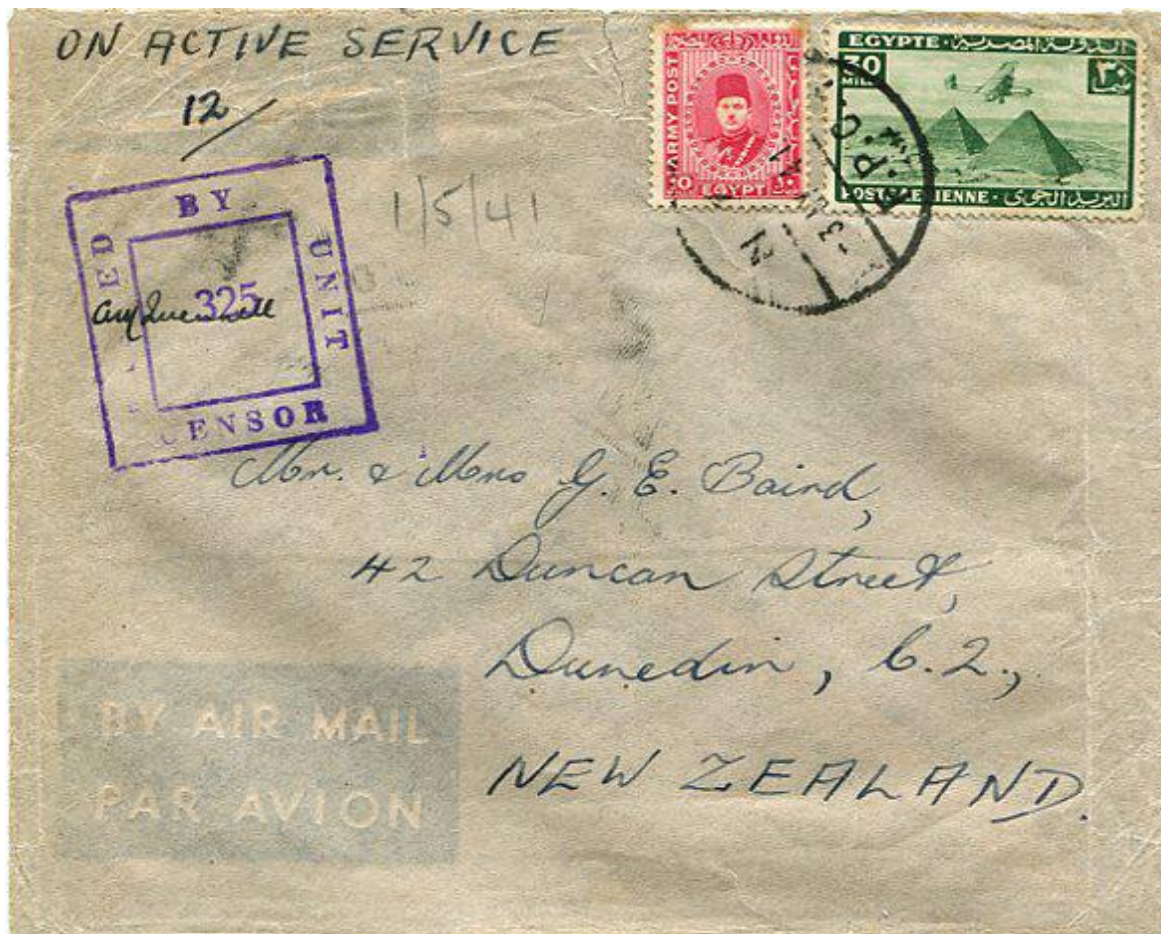 ON ACTIVE SERVICE
12/
1/5/41
BY
UNIT
CENSOR
325
ARMY POST
EGYPT
EGYPTE
الدولة المصرية
30
٣٠
MILLS
POSTE AERIENNE
البريد الجوى
N.Z.
Mr. & Mrs G. E. Baird,
42 Duncan Street,
Dunedin, C.2.,
NEW ZEALAND.
BY AIR MAIL
PAR AVION